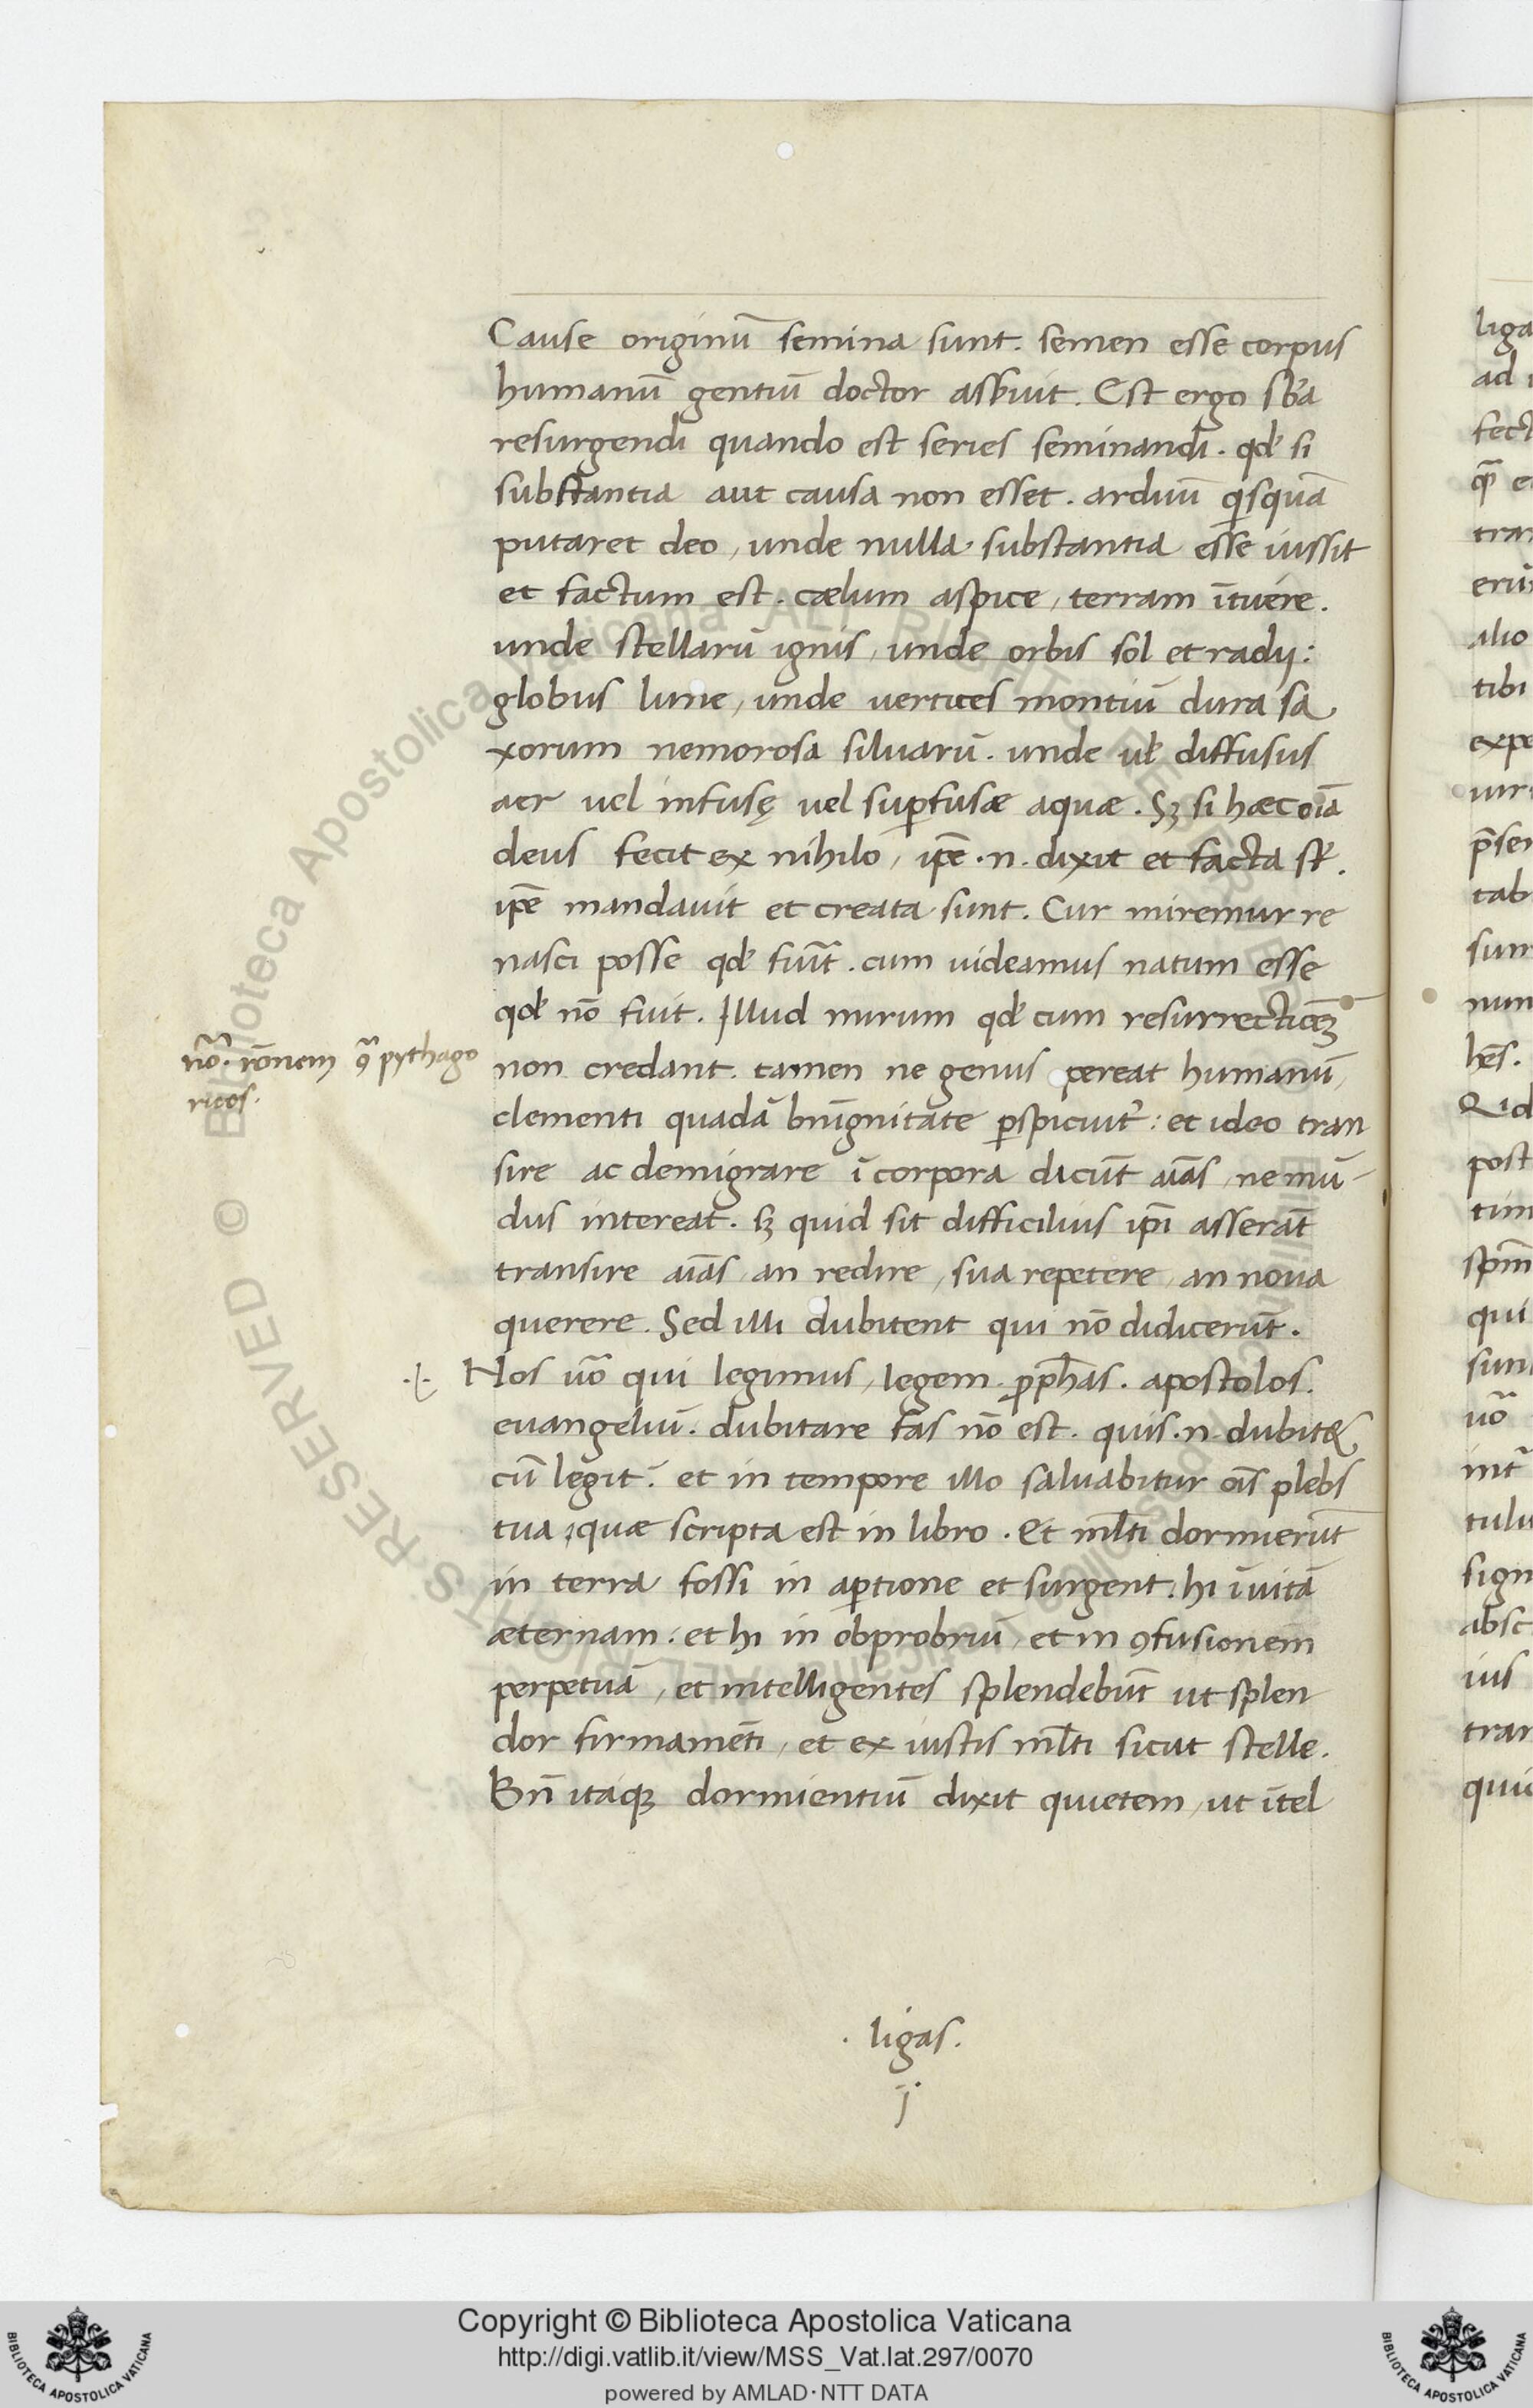 Cause originū semina sunt. semen esse corpus
humanū gentiū doctor asṗuit. Est ergo sb̄a
resurgendi quando est series seminandi. qđ si
substantia aut causa non esset. arduū qisquā
putaret deo, unde nulla substantia esse iussit
et factum est. cælum aspice, terram ītuere.
unde stellarū ignis, unde orbis sol et radij:
globus lune, unde uertices montiū dura sa
xorum nemorosa siluarū. unde ul̄ diffusus
aer uel infusę uel sup̱fusæ aquæ. Sꝫ si hæc oīa
deus fecit ex nihilo, ip̄e .n. dixit et facta st̄.
ip̄e mandauit et creata sunt. Cur miremur re
nasci posse qđ fuīt. cum uideamus natum esse
qđ nō fuit. Illud mirum qđ cum resurrectiōeꝫ
non credant. tamen ne genus pereat humanū,
clementi quadā bnīgnitate ꝑspiciuit᷑: et ideo tran
sire ac demigrare ī corpora dicūt aīas, ne mū-
dus intereat. sꝫ quid sit difficilius ip̄i asserāt
transire aīas, an redire, sua repetere, an noua
querere. Sed illi dubitent qui nō didicerūt.
Nos uō qui legimus, legem. ꝓph̄as. apostolos.
euangeliū. dubitare fas nō est. quis .n. dubitet
cū legit: et in tempore illo saluabitur oīs plebs
tua, quæ scripta est in libro. Et ml̄ti dormierūt
in terra fossi in aꝑtione et surgent. hi ī uitā
æternam: et hi in obprobriū, et in ꝯfusionem
perpetuā, et intelligentes splendebūt ut splen
dor firmamēti, et ex iustis ml̄ti sicut stelle.
Bn̄ itaqꝫ dormientiū dixit quietem, ut ītel
nō. rōnem ꝯ pythago
ricos.
. ligas.
j
liga
ad
fect
qā e
tra
erū
alio
tibi
expe
p̄se
tab
sum
num
hēs.
post
tim
sp̄m
qui
sun
uō
int
tulu
sign
absc
ius
tran
Copyright © Biblioteca Apostolica Vaticana
http://digi.vatlib.it/view/MSS_Vat.lat.297/0070
powered by AMLAD·NTT DATA
BIBLIOTECA APOSTOLICA VATICANA
BIBLIOTECA APOSTOLICA VATICANA